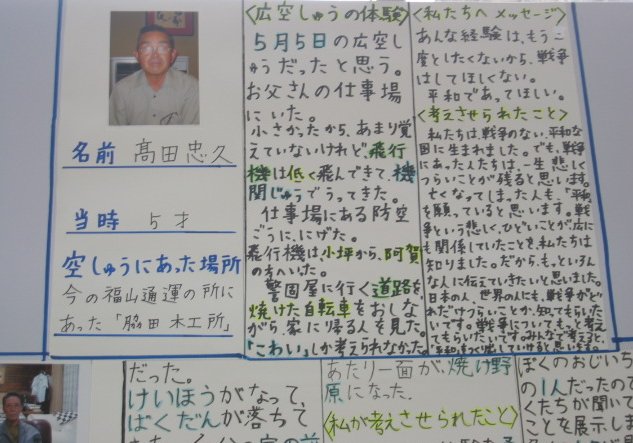 名前 髙田忠久
当時 5才
空しゅうにあった場所
今の福山通運の所に
あった「脇田木工所」
〈広空しゅうの体験〉
5月5日の広空し
ゅうだったと思う。
お父さんの仕事場
にいた。
小さかったから、あまり覚
えていないけれど、飛行
機は低く飛んできて、機
関じゅうでうってきた。
仕事場にある防空
ごうに、にげた。
飛行機は小坪から、阿賀
の方へいった。
警固屋に行く道路を
焼けた自転車をおしな
がら、家に帰る人を見た。
「こわい」しか考えられなかった。
〈私たちへメッセージ〉
あんな経験は、もう二
度としたくないから、戦争
はしてほしくない。
平和であってほしい。
〈考えさせられたこと〉
私たちは、戦争のない、平和な
国に生まれました。でも、戦争
にあった人たちは、一生悲しく
つらいことが残ると思います。
亡くなってしまった人も、「平和」
を願っていると思います。戦
争という悲しく、ひどいことが、広に
も関係していたことを、私たちは
知りました。だから、もっといろん
な人に伝えていきたいと思いました。
日本の人、世界の人にも、戦争がど
れだけつらいことか、知ってもらいた
いです。戦争についてもっと考え
てもらいたいです。みんなで考えると、
思います。
だった。
けいほうがなって、
ばくだんが落ちて
あたり一面が、焼け野
原になった。
〈私が考えさせられたこと〉
ぼくのおじいち
の1人だったので
くたちが聞いて
ことを展示しま